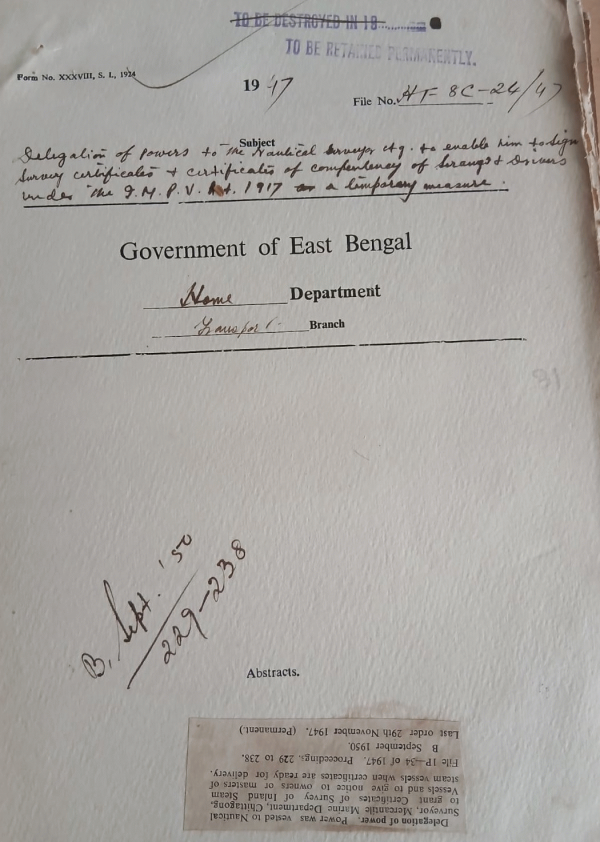 TO BE DESTROYED IN 19
TO BE RETAINED PERMANENTLY.
Form No. XXXVIII, S. I., 1924
1947
File No. HT 8C-24/47
Subject
Delegation of Powers to the Nautical Surveyor Ctg. to enable him to sign
Survey certificates & certificates of competency of Serangs & Drivers
under the I.M.P.V. Act. 1917 as a temporary measure.
Government of East Bengal
Home Department
Transport Branch
B, Sept. '50
229-238
Abstracts.
Delegation of power. Power was vested to Nautical
Surveyor, Mercantile Marine Department, Chittagong,
to grant Certificates of Survey of Inland Steam
Vessels and to give notice to owners or masters of
steam vessels when certificates are ready for delivery.
File 1P-34 of 1947. Proceedings. 229 to 238.
B September 1950.
Last order 29th November 1947. (Permanent.)